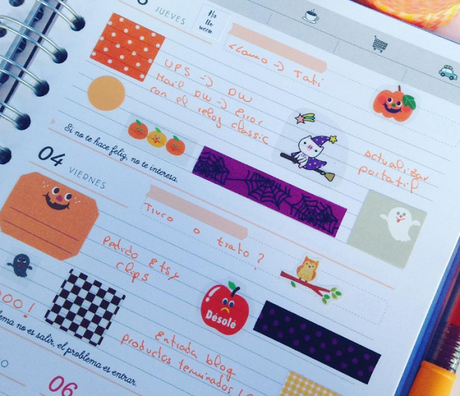 JUEVES
No lo
llamo → Tati
UPS → DW
Mail DW → Error
con el reloj classic
actualizar
portatil
Si no te hace feliz, no te interesa.
04
VIERNES
Truco o trato?
pedido Etsy
clips
Désolé
OOO!
ema no es salir, el problema es entrar.
Entrada blog
productos terminados
06